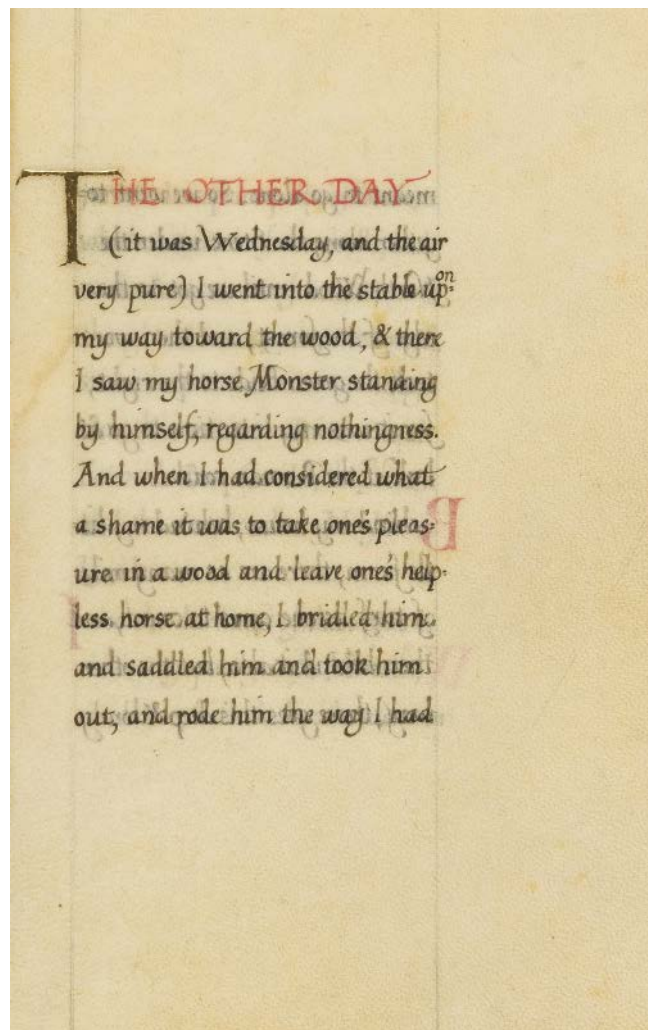 THE OTHER DAY
(it was Wednesday, and the air
very pure) I went into the stable upon
my way toward the wood, & there
I saw my horse Monster standing
by himself, regarding nothingness.
And when I had considered what
a shame it was to take one's pleas-
ure in a wood and leave one's help-
less horse at home, I bridled him
and saddled him and took him
out, and rode him the way I had